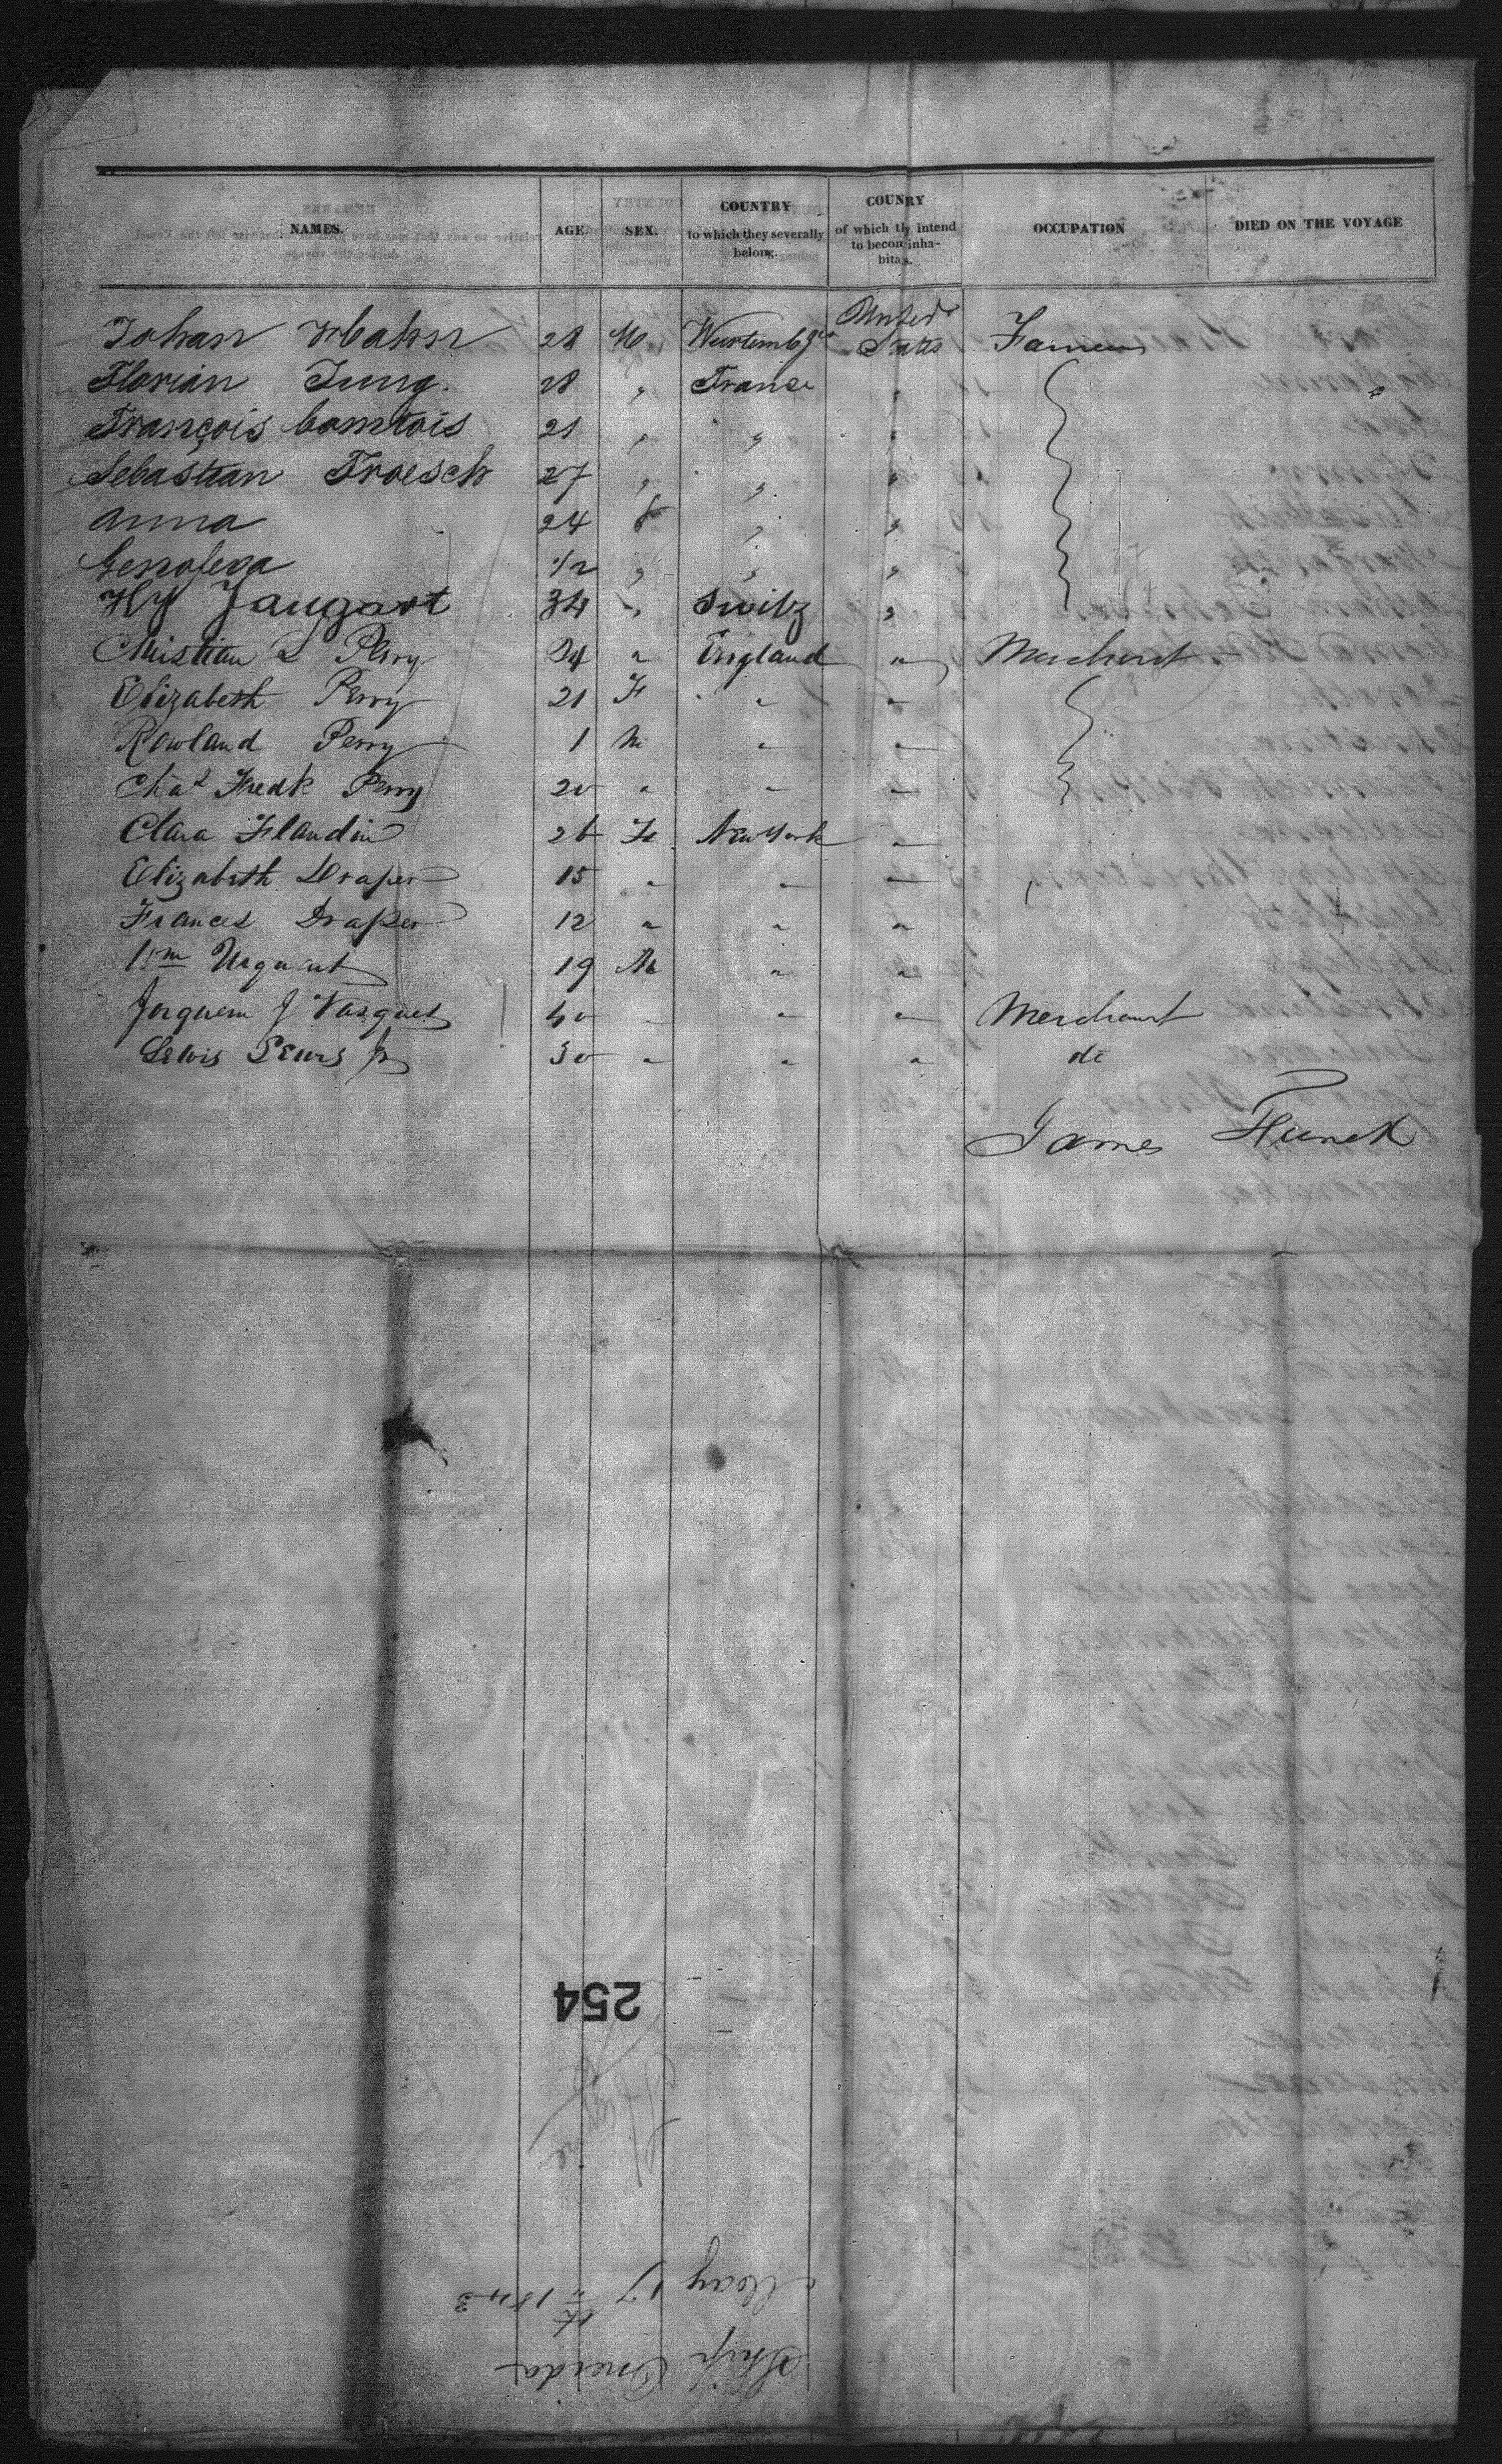 NAMES. AGE. SEX. COUNTRY to which they severally belong. COUNRY of which tly intend to becom inha- bitas. OCCUPATION DIED ON THE VOYAGE
Johan Hahn 28 M. United States Farmer
Florian Jung. 28 " France "
François Comtois 21 " " "
Sebastian Troesch 27 " " "
Anna 24 f " "
Genofeva 1/2 " " "
Hy Jaugart 34 " Switz "
Christian L Perry 34 " England " Merchant
Elizabeth Perry 21 F " "
Rowland Perry 1 M " "
Chas Fredk Perry 20 " " "
Clara Flandin 26 F New York "
Elizabeth Draper 15 " " "
Frances Draper 12 " " "
Wm Urquart 19 M " "
J Vasques 40 " " " Merchant
Lewis 30 " " " do
James Funck
254
Havre
May 17th 1843
Ship Oneida